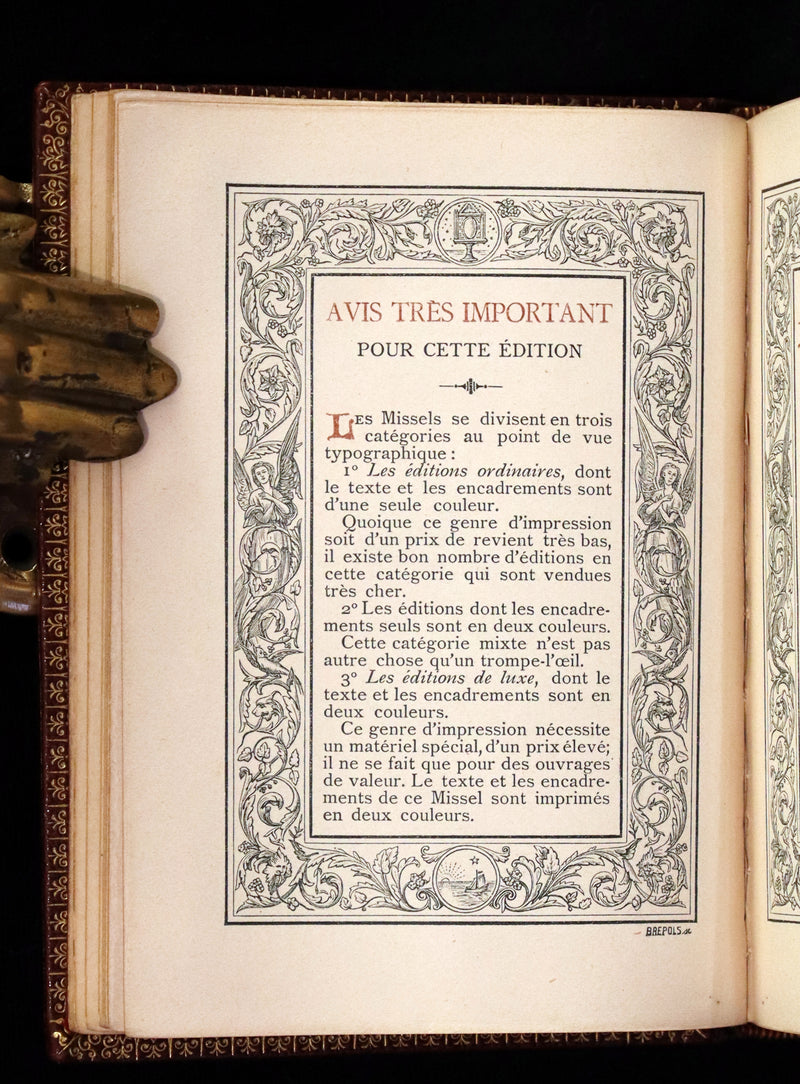 AVIS TRÈS IMPORTANT
POUR CETTE ÉDITION
LES Missels se divisent en trois
catégories au point de vue
typographique :
1° Les éditions ordinaires, dont
le texte et les encadrements sont
d'une seule couleur.
Quoique ce genre d'impression
soit d'un prix de revient très bas,
il existe bon nombre d'éditions en
cette catégorie qui sont vendues
très cher.
2° Les éditions dont les encadre-
ments seuls sont en deux couleurs.
Cette catégorie mixte n'est pas
autre chose qu'un trompe-l'œil.
3° Les éditions de luxe, dont le
texte et les encadrements sont en
deux couleurs.
Ce genre d'impression nécessite
un matériel spécial, d'un prix élevé;
il ne se fait que pour des ouvrages
de valeur. Le texte et les encadre-
ments de ce Missel sont imprimés
en deux couleurs.
BREPOLS sc